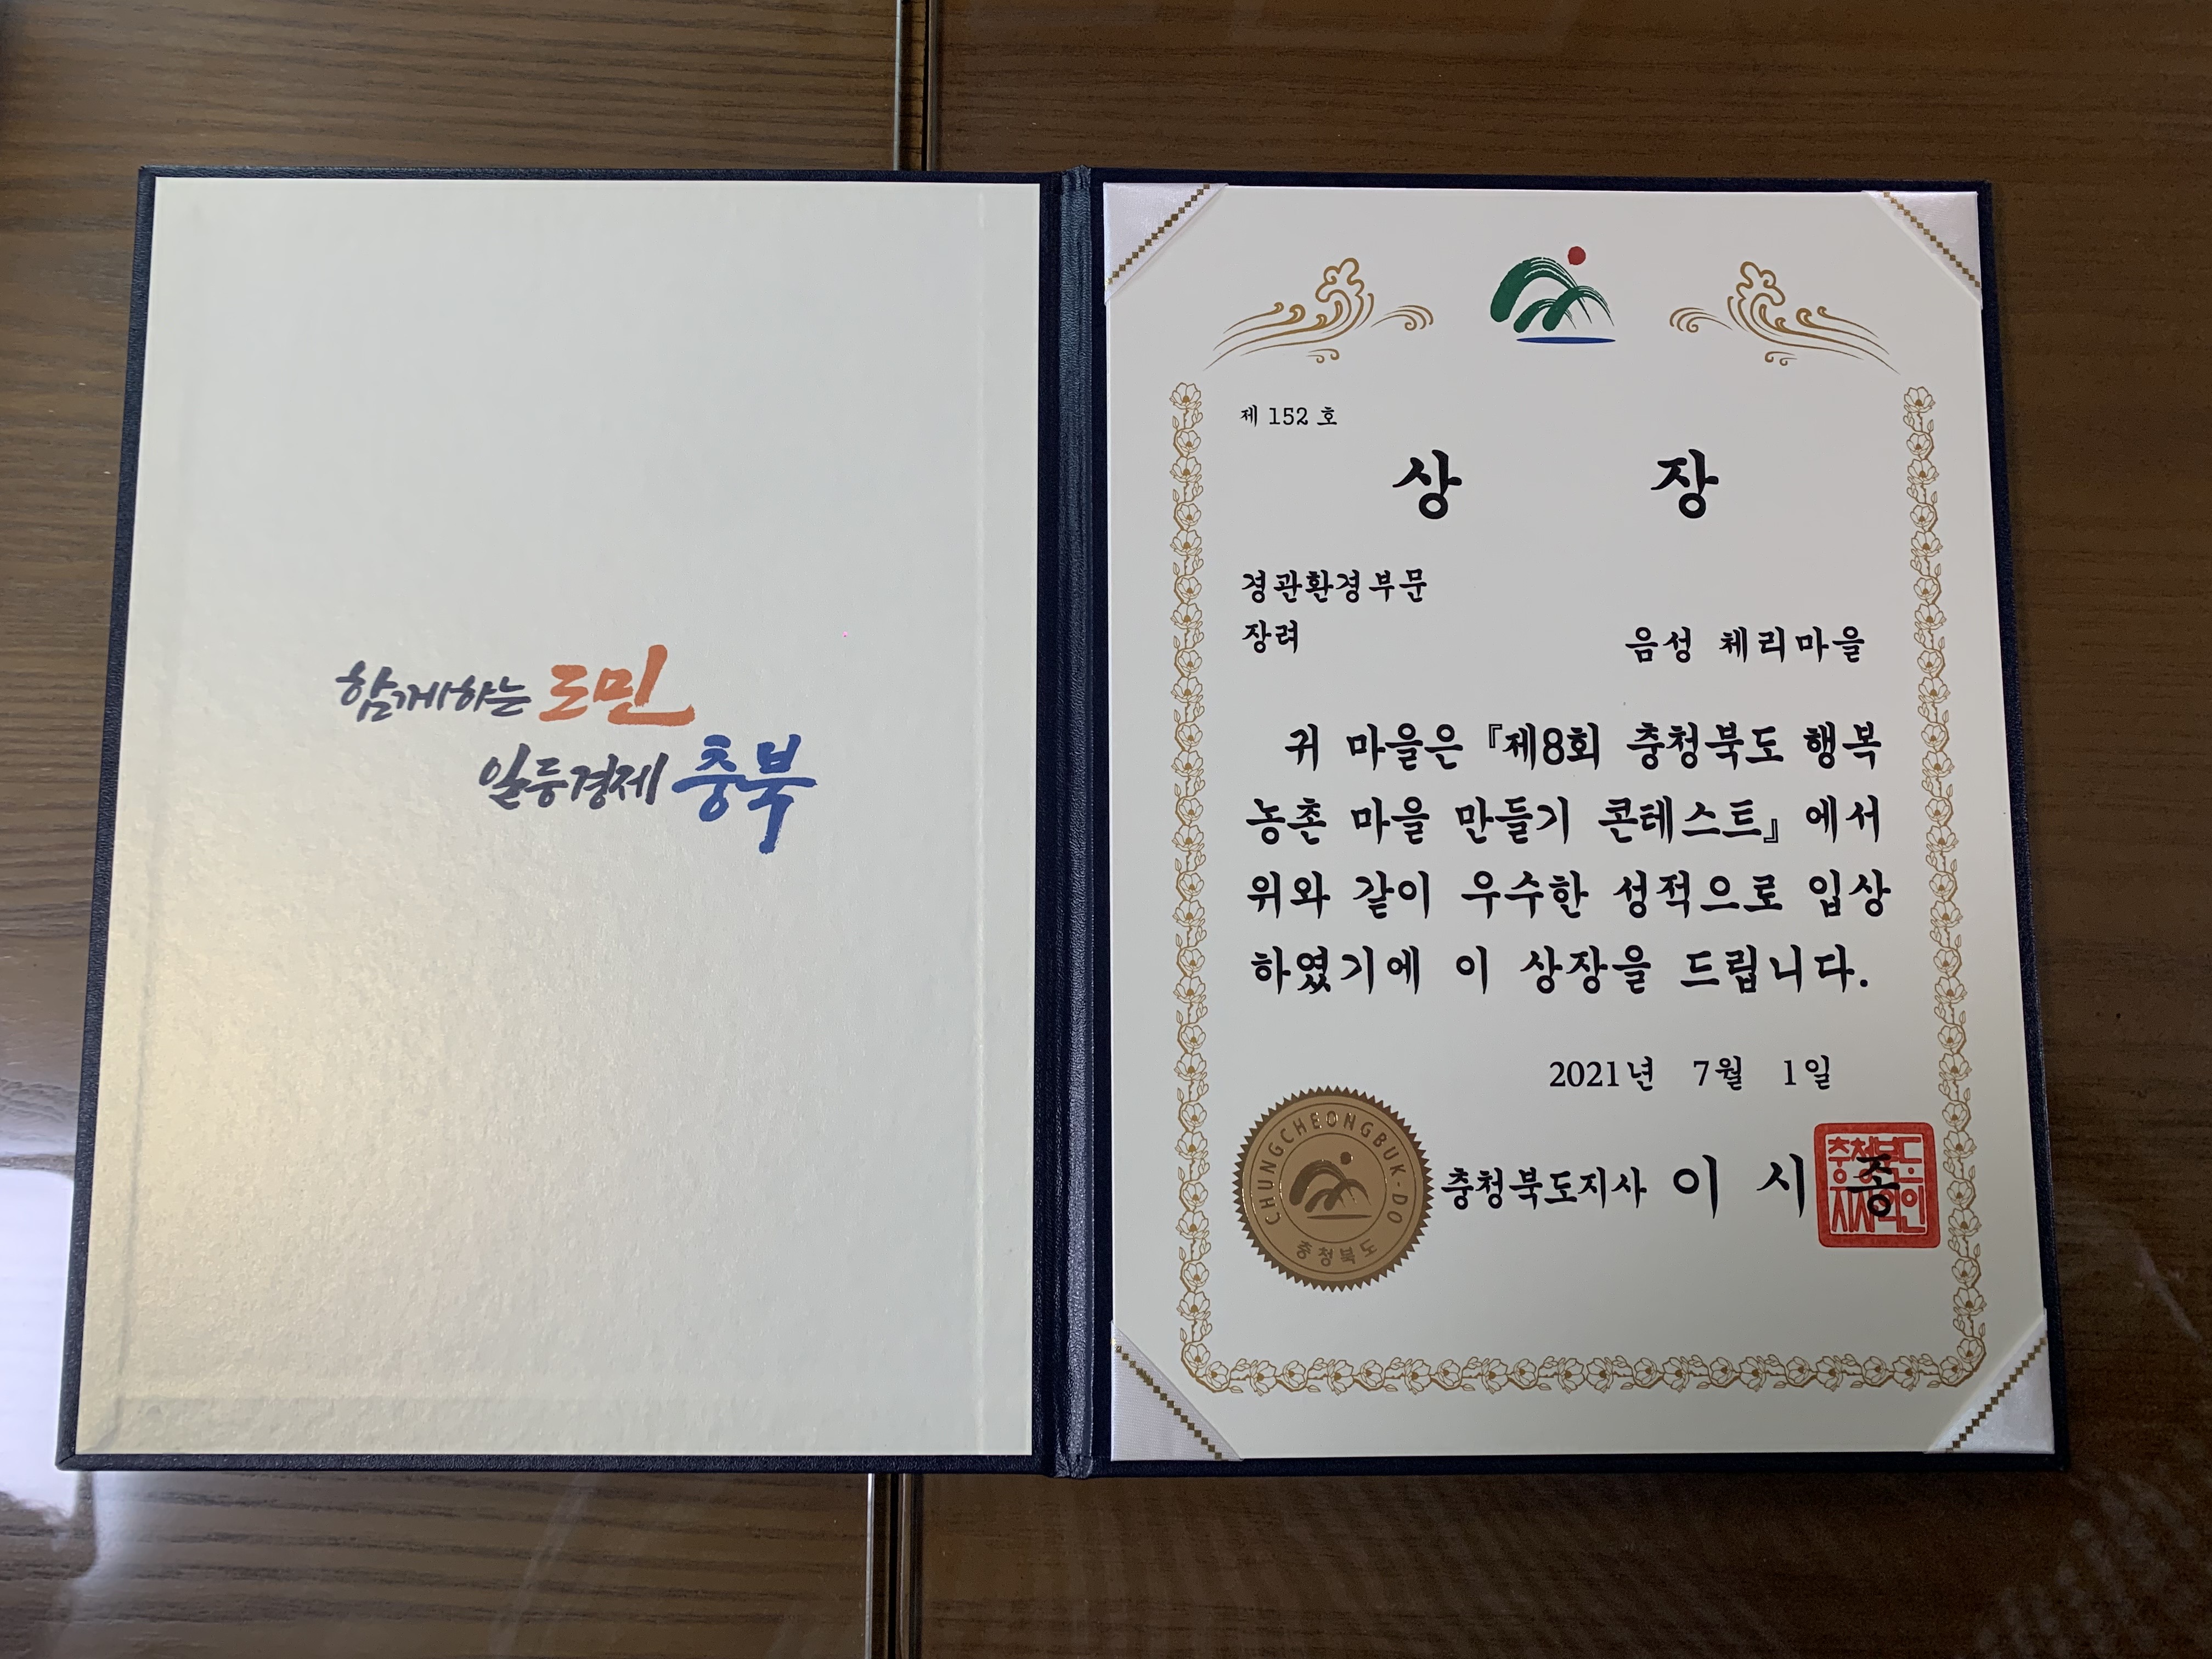 함께하는 도민
일등경제 충북
제 152 호
상 장
경관환경부문
장려
음성 체리마을
귀 마을은 『제8회 충청북도 행복
농촌 마을 만들기 콘테스트』 에서
위와 같이 우수한 성적으로 입상
하였기에 이 상장을 드립니다.
2021년 7월 1일
CHUNGCHEONGBUK-DO
충청북도
충청북도지사 이 시 종
충청북도
지사의인